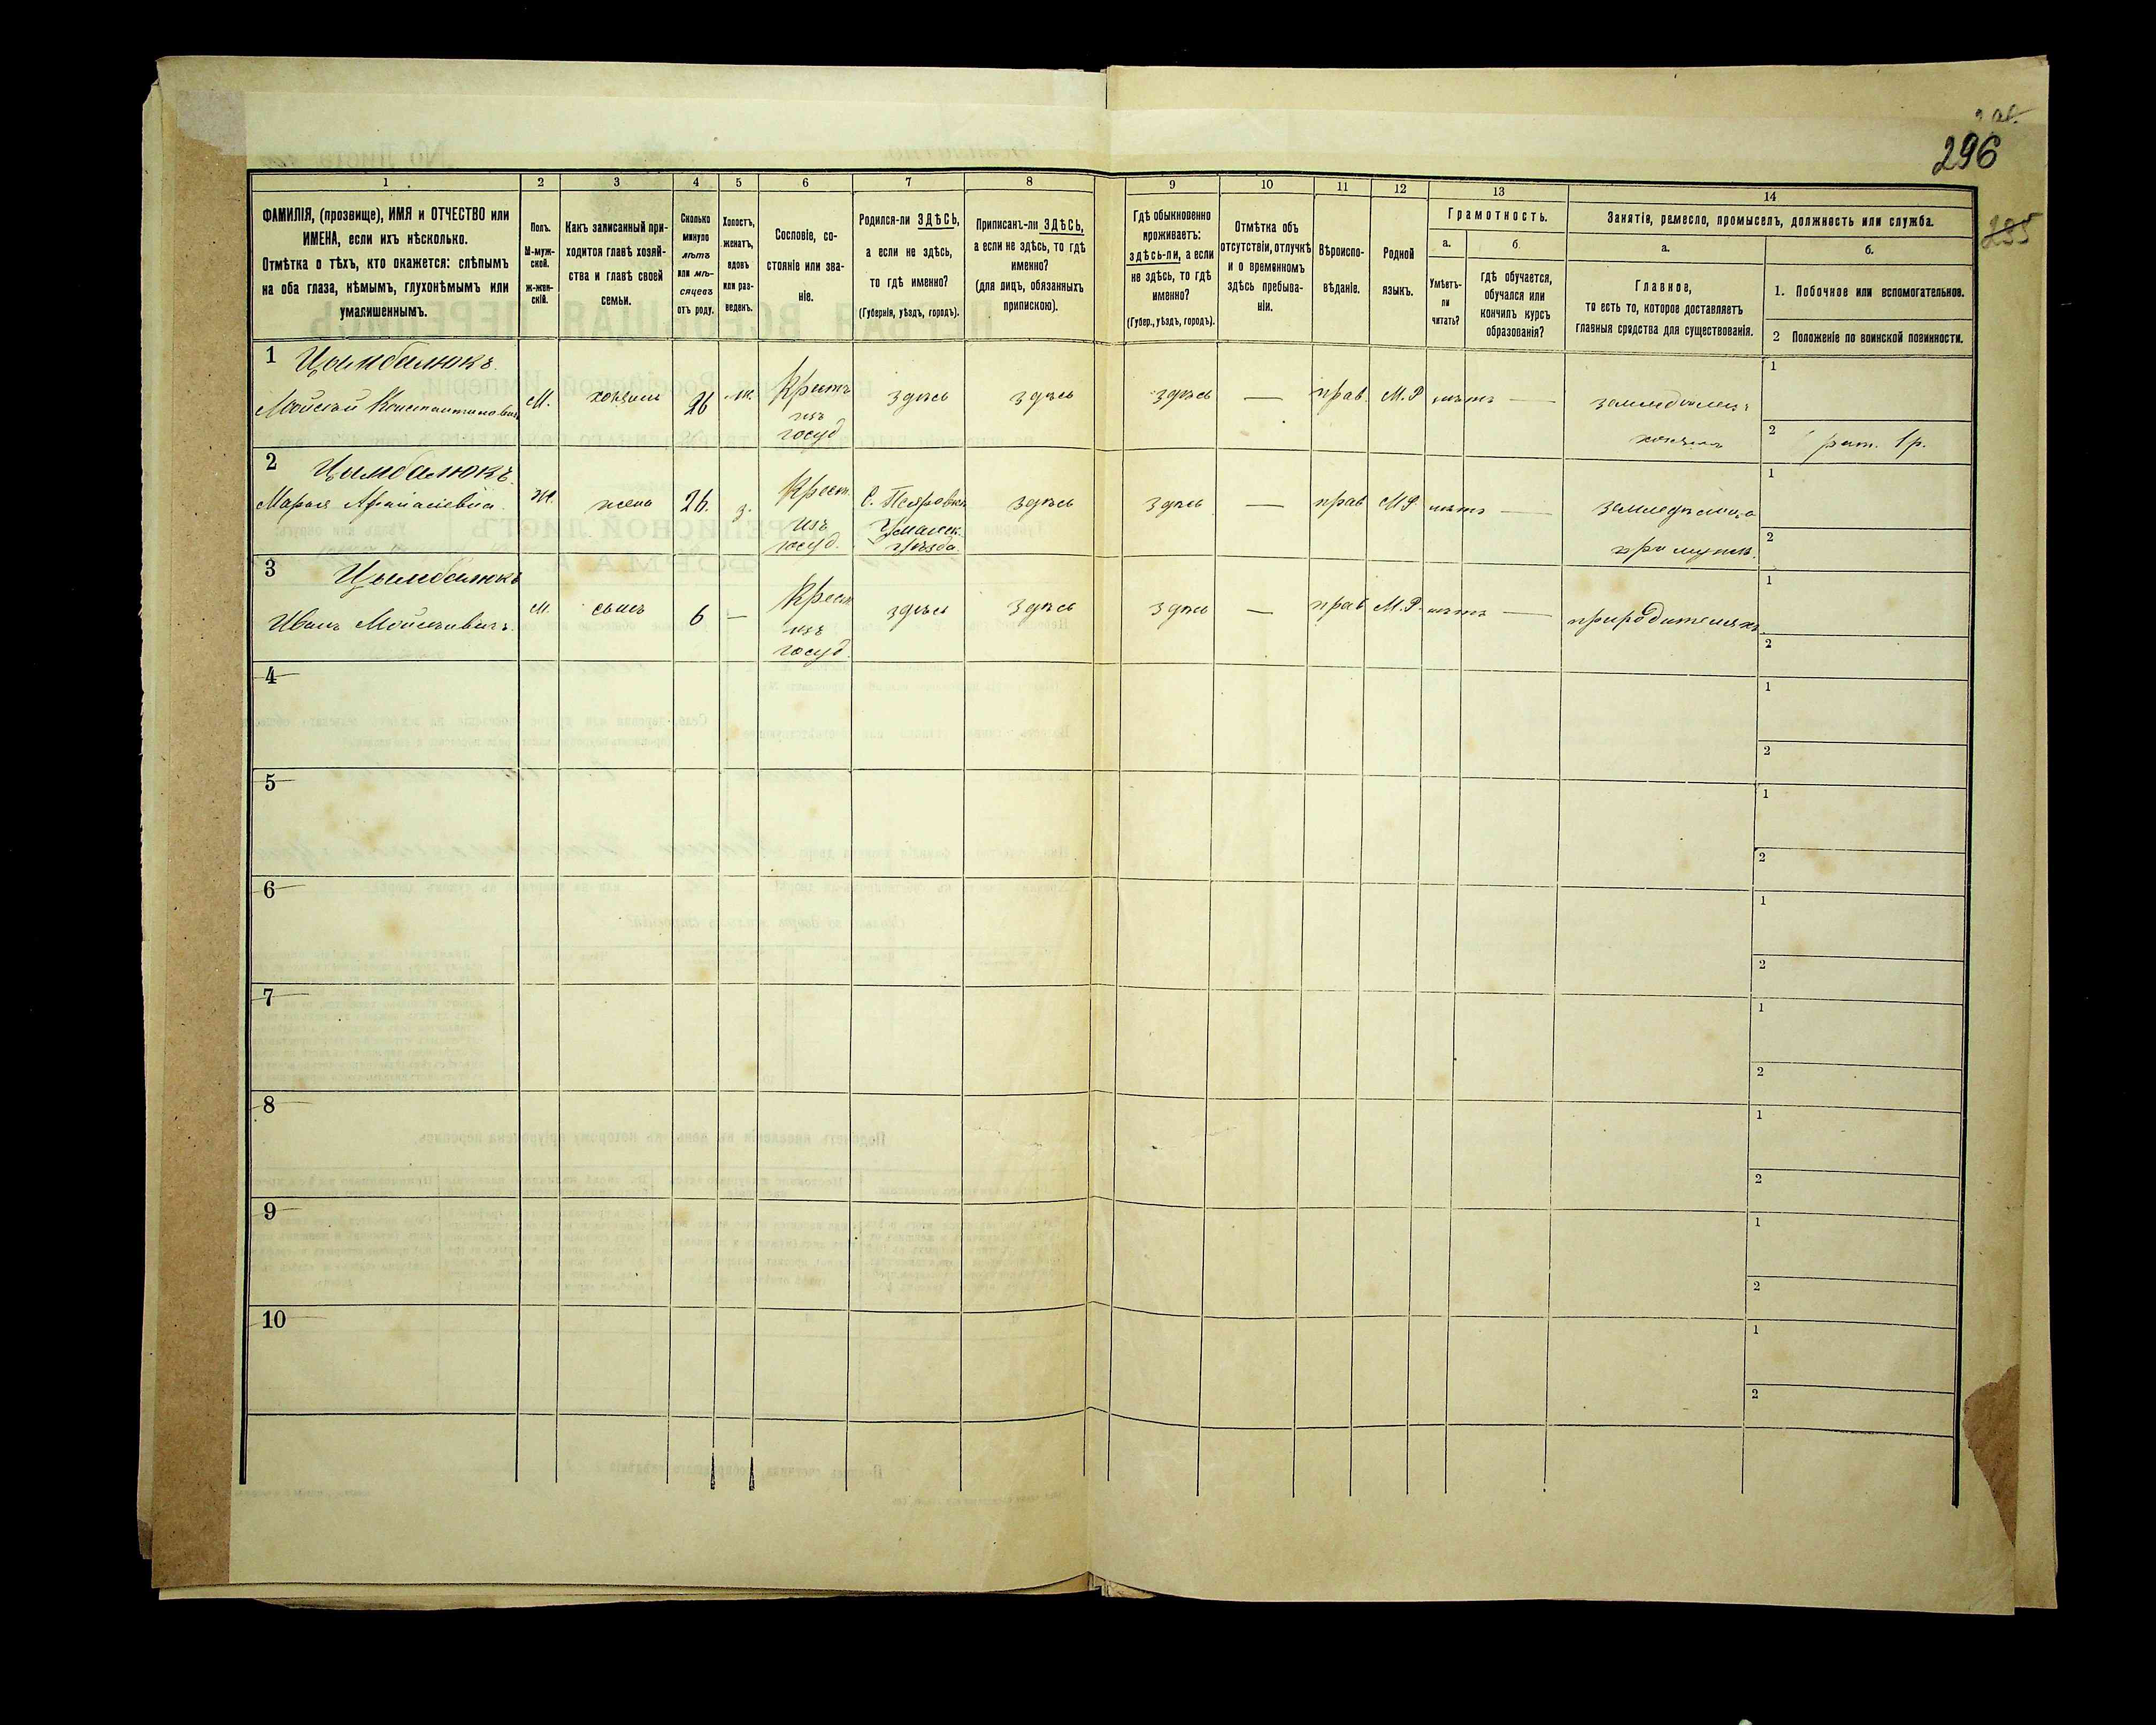 296
285
1
2
3
4
5
6
7
8
9
10
11
12
13
14
ФАМИЛІЯ, (прозвище), ИМЯ и ОТЧЕСТВО или
ИМЕНА, если ихъ нѣсколько.
Отмѣтка о тѣхъ, кто окажется: слѣпымъ
на оба глаза, нѣмымъ, глухонѣмымъ или
умалишеннымъ.
Полъ.
М-муж-
ской.
Ж-жен-
скій.
Какъ записанный при-
ходится главѣ хозяй-
ства и главѣ своей
семьи.
Сколько
минуло
лѣтъ
или мѣ-
сяцевъ
отъ роду.
Холостъ,
женатъ,
вдовъ
или раз-
веденъ.
Сословіе, со-
стояніе или зва-
ніе.
Родился-ли ЗДѢСЬ,
а если не здѣсь,
то гдѣ именно?
(Губернія, уѣздъ, городъ).
Приписанъ-ли ЗДѢСЬ,
а если не здѣсь, то гдѣ
именно?
(для лицъ, обязанныхъ
припискою).
Гдѣ обыкновенно
проживаетъ:
здѣсь-ли, а если
не здѣсь, то гдѣ
именно?
(Губер., уѣздъ, городъ).
Отмѣтка объ
отсутствіи, отлучкѣ
и о временномъ
здѣсь пребыва-
ніи.
Вѣроиспо-
вѣданіе.
Родной
языкъ.
Грамотность.
а.
Умѣетъ-
ли
читать?
б.
гдѣ обучается,
обучался или
кончилъ курсъ
образованія?
Занятіе, ремесло, промыселъ, должность или служба.
а.
Главное,
то есть то, которое доставляетъ
главныя средства для существованія.
б.
1. Побочное или вспомогательное.
2 Положеніе по воинской повинности.
1 Цымбалюкъ.
Мойсей Константиновичъ
М.
хозяинъ
26
ж.
Крестъ
изъ
госуд
здѣсь
здѣсь
здѣсь
—
прав.
М.Р
нѣтъ —
земледѣлецъ
хозяинъ
1
2 рат. 1р.
2 Цымбалюкъ.
Марья Афанасіевна.
Ж.
жена
26.
з.
Крест.
изъ
госуд.
Уманск.
уѣзда.
здѣсь
здѣсь
—
прав
М.Р.
нѣтъ —
при мужѣ.
1
2
3 Цымбалюкъ
Иванъ Мойсеевичъ.
М.
сынъ
6
—
Крест
изъ
госуд.
здѣсь
здѣсь
здѣсь
—
прав
М.Р.
нѣтъ —
при родителяхъ
1
2
4
1
2
5
1
2
6
1
2
7
1
2
8
1
2
9
1
2
10
1
2